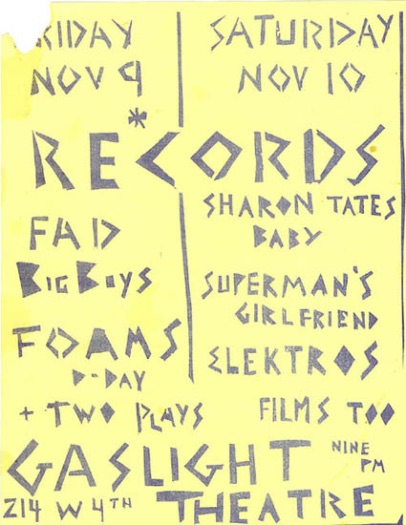 FRIDAY
NOV 9
SATURDAY
NOV 10
*
RECORDS
FAD
BIG BOYS
FOAMS
D-DAY
+ TWO PLAYS
SHARON TATES
BABY
SUPERMAN'S
GIRLFRIEND
ELEKTROS
FILMS TOO
GASLIGHT
NINE
PM
214 W 4TH THEATRE